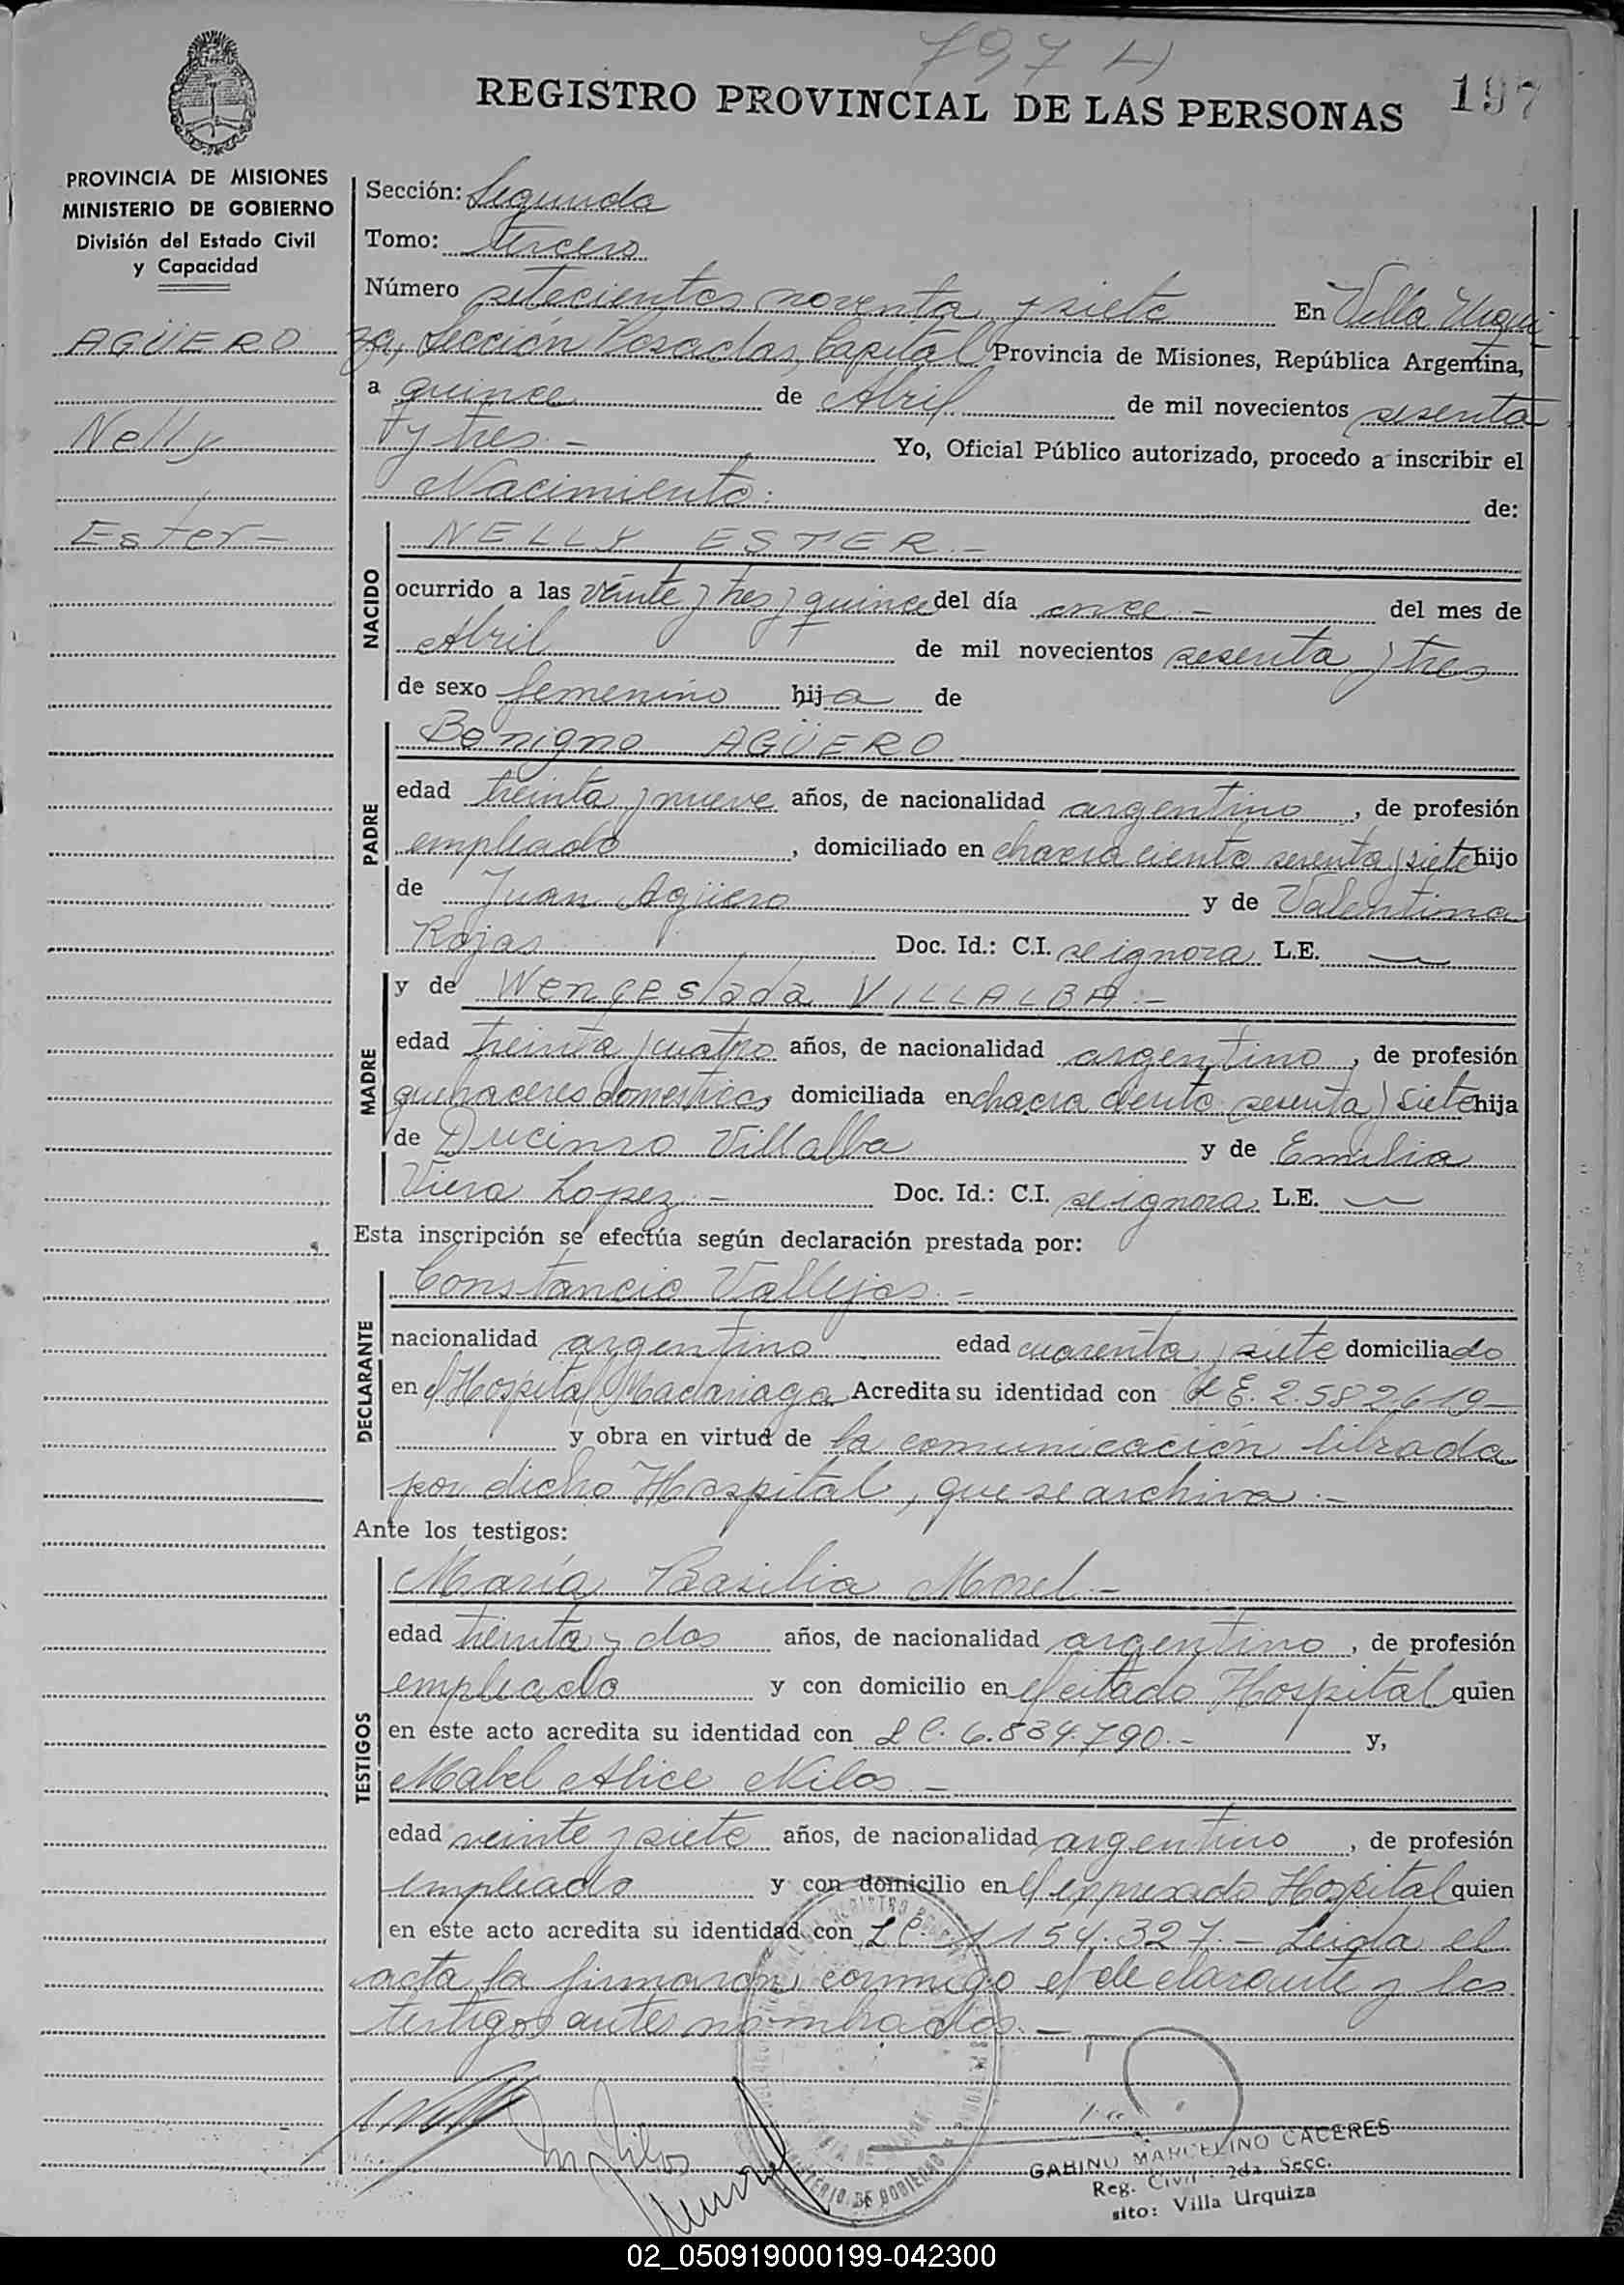 797 H
REGISTRO PROVINCIAL DE LAS PERSONAS 197
PROVINCIA DE MISIONES
MINISTERIO DE GOBIERNO
División del Estado Civil
y Capacidad
AGÜERO
Nelly
Ester –
Sección: Segunda
Tomo: tercero
Número setecientos noventa y siete En Villa Urqui
za, Sección Posadas, Capital Provincia de Misiones, República Argentina,
a quince de Abril de mil novecientos sesenta
y tres.– Yo, Oficial Público autorizado, procedo a inscribir el
Nacimiento: de:
NACIDO
NELLY ESTER.–
ocurrido a las veinte y tres y quince del día once – del mes de
Abril de mil novecientos sesenta y tres
de sexo femenino hija de
PADRE
Benigno AGÜERO
edad treinta y nueve años, de nacionalidad argentino, de profesión
empleado, domiciliado en chacra ciento sesenta y siete hijo
de Juan Agüero y de Valentina
Rojas Doc. Id.: C.I. se ignora L.E. —
MADRE
y de Wenceslada VILLALBA.–
edad treinta y cuatro años, de nacionalidad argentino, de profesión
quehaceres domesticos domiciliada en chacra ciento sesenta y siete hija
de Villalba y de Emilia
Viera Lopez – Doc. Id.: C.I. se ignora L.E. —
Esta inscripción se efectúa según declaración prestada por:
DECLARANTE
Constancio Vallejos.–
nacionalidad argentino edad cuarenta y siete domiciliado
en el Hospital Madariaga Acredita su identidad con L.E. 2.582.619–
y obra en virtud de la comunicación librada
por dicho Hospital, que se archiva.–
Ante los testigos:
TESTIGOS
María Basilia Morel –
edad treinta y dos años, de nacionalidad argentino, de profesión
empleado y con domicilio en el citado Hospital quien
en este acto acredita su identidad con L C. 6.834.790.– y,
Mabel Alice Nilos –
edad veinte y siete años, de nacionalidad argentino, de profesión
empleado y con domicilio en el expresado Hospital quien
en este acto acredita su identidad con L C. 1154.327.– Leida el
acta la firmaron conmigo el declarante y los
testigos antes nombrados.–
GABINO MARCELINO CACERES
Reg. Civil - 2da. Secc.
sito: Villa Urquiza
02_050919000199-042300